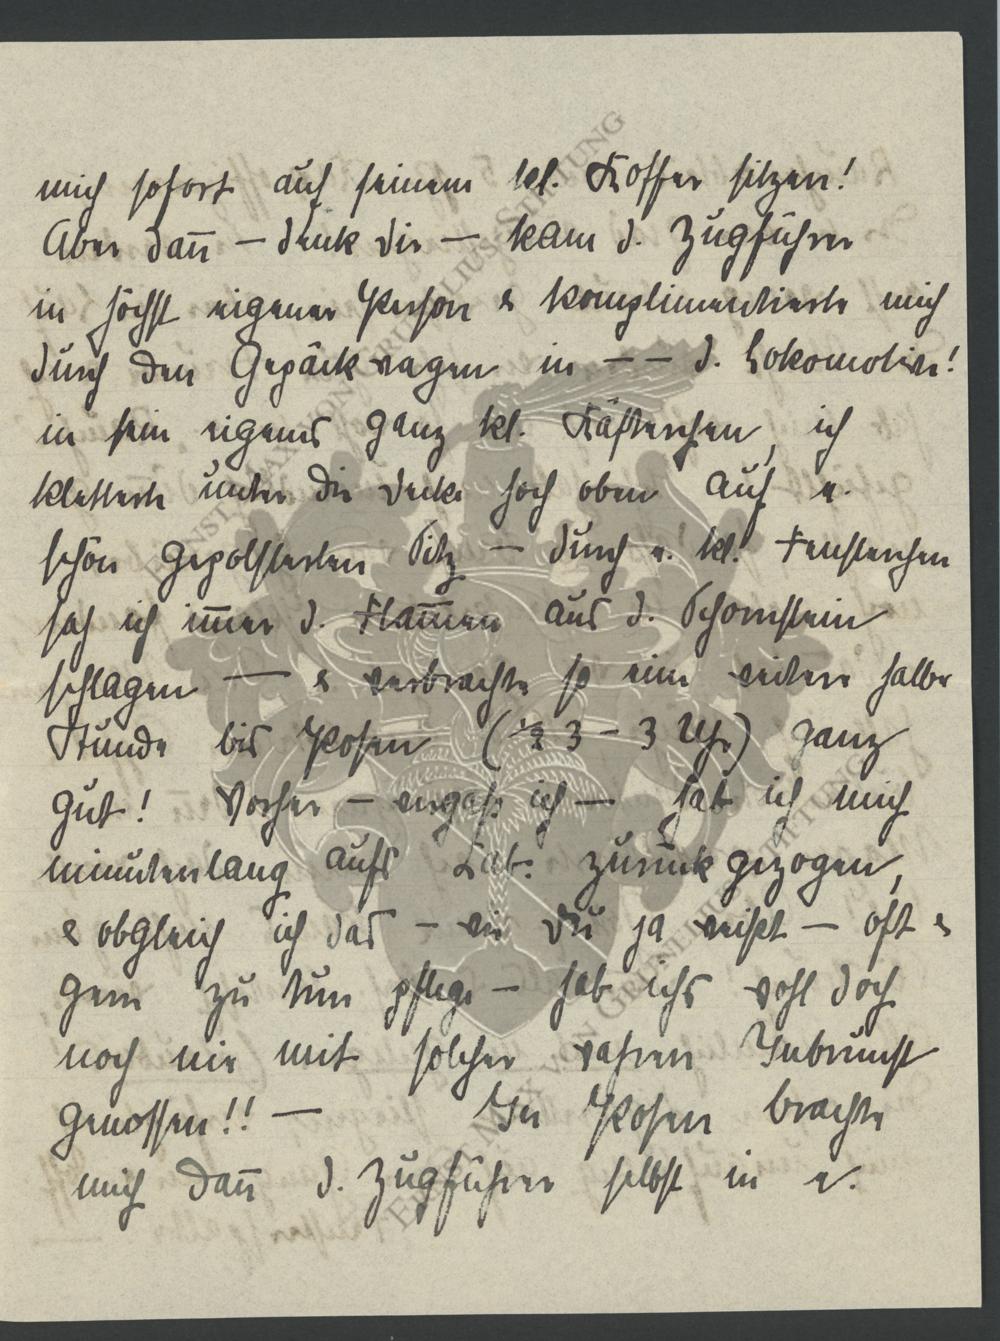 mich sofort auf seinem kl. Koffer sitzen!
Aber dan̄ — denk dir — kam d. Zugführer
in höchst eigener Person & komplimentierte mich
durch den Gepäckwagen in — — d. Lokomotive!
in sein eigenes ganz kl. Kästerchen, ich
kletterte unter die Decke hoch oben auf e.
schön gepolsterten Sitz — durch e. kl. Fensterchen
sah ich im̄er d. Flam̄en aus d. Schornstein
schlagen — & verbrachte so eine weitere halbe
Stunde bis Posen (½ 3 – 3 Uhr) ganz
gut! Vorher — vergaß ich — hab ich mich
minutenlang aufs Lab: zurückgezogen,
& obgleich ich das — wie Du ja weißt — oft &
gern zu tun pflege — hab ichs wohl doch
noch nie mit solcher wahren Inbrunst
genossen!! — In Posen brachte
mich dan̄ d. Zugführer selbst in e.
ERNST MAX VON GRUNELIUS-STIFTUNG
ERNST MAX VON GRUNELIUS-STIFTUNG